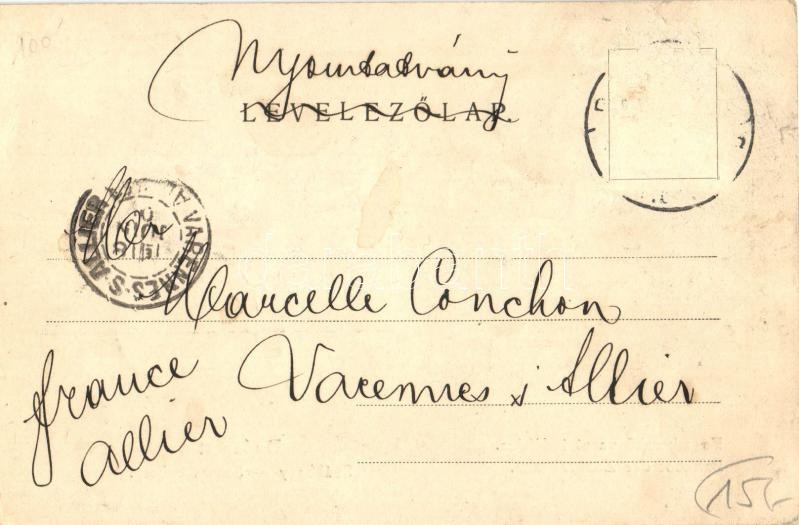 100
Nyomtatvány
LEVELEZŐLAP
VARENNES-S-ALLIER
Marcelle Conchon
Varennes s/ Allier
france
allier
15/-